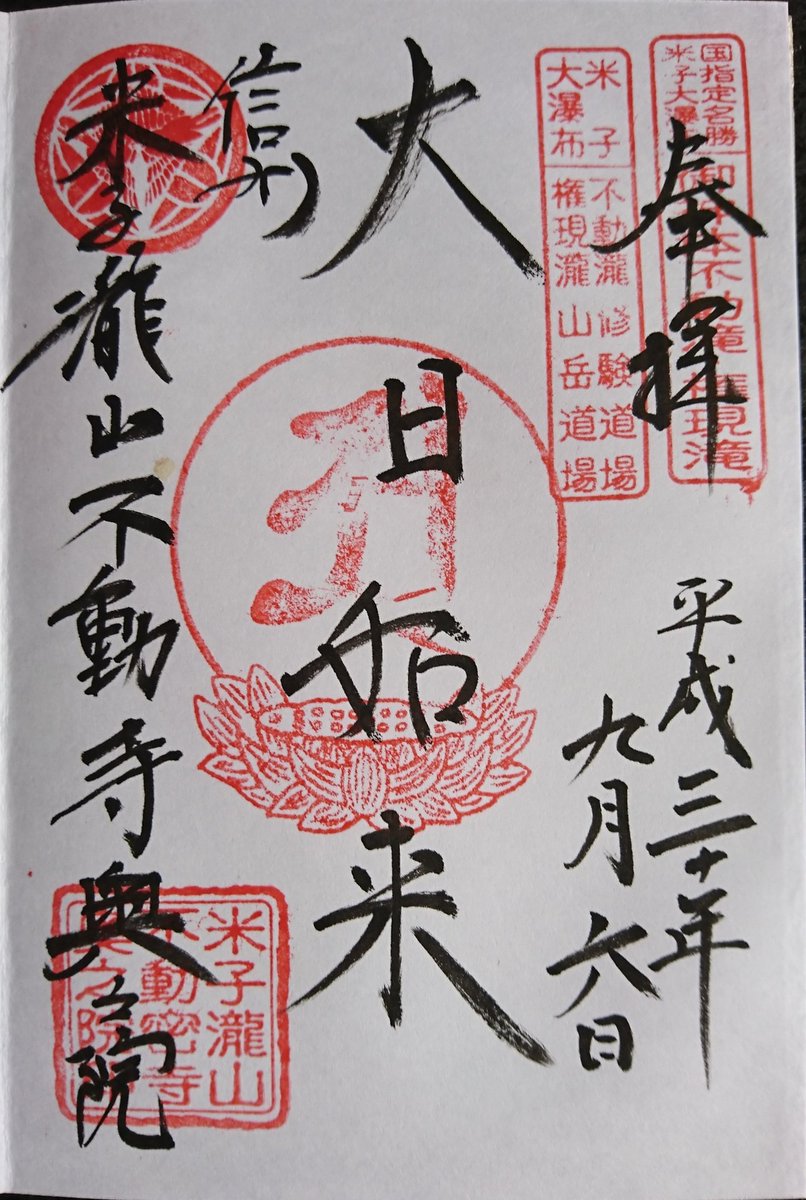 国指定名勝
米子大瀑
不動滝 権現滝
奉拝
平成三十年
九月六日
米子 不動瀧修験道場
大瀑布 権現瀧山岳道場
大日如来
信州
米子瀧山不動寺奥之院
米子瀧山
不動密寺
奥之院